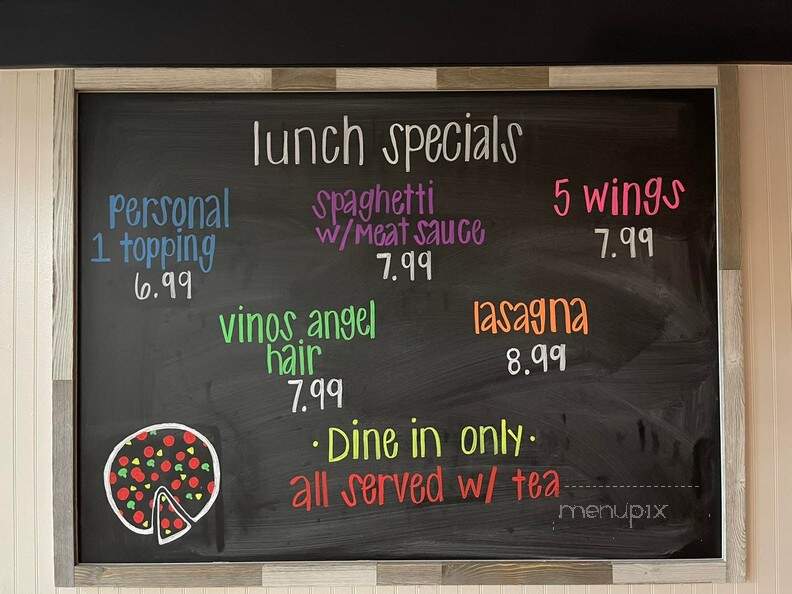 lunch specials
personal
1 topping
6.99
spaghetti
w/ meat sauce
7.99
5 wings
7.99
vinos angel
hair
7.99
lasagna
8.99
· Dine in only ·
all served w/ tea
menupix